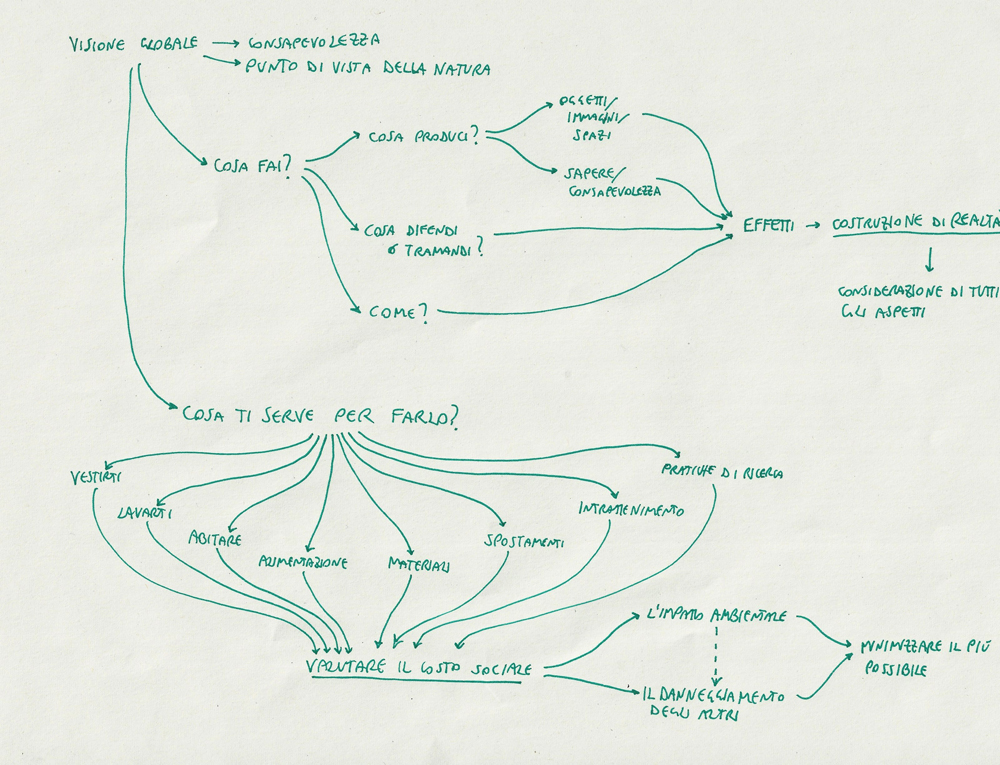 VISIONE GLOBALE → CONSAPEVOLEZZA
→ PUNTO DI VISTA DELLA NATURA
COSA FAI?
COSA PRODUCI?
OGGETTI/
IMMAGINI/
SPAZI
SAPERE/
CONSAPEVOLEZZA
COSA DIFENDI
O TRAMANDI?
COME?
EFFETTI → COSTRUZIONE DI REALTÀ
CONSIDERAZIONE DI TUTTI
GLI ASPETTI
COSA TI SERVE PER FARLO?
VESTIRTI
LAVARTI
ABITARE
ALIMENTAZIONE
MATERIALI
SPOSTAMENTI
INTRATTENIMENTO
PRATICHE DI RICERCA
VALUTARE IL COSTO SOCIALE
L'IMPATTO AMBIENTALE
IL DANNEGGIAMENTO
DEGLI ALTRI
MINIMIZZARE IL PIÚ
POSSIBILE